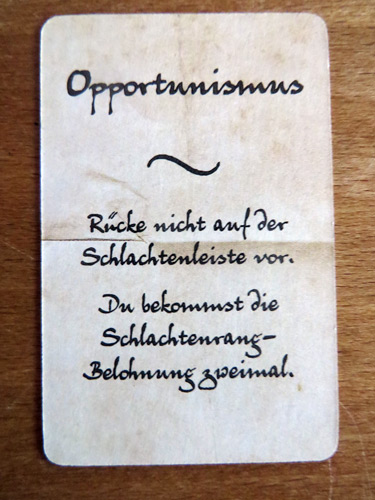 Opportunismus
~
Rücke nicht auf der
Schlachtenleiste vor.
Du bekommst die
Schlachtenrang-
Belohnung zweimal.